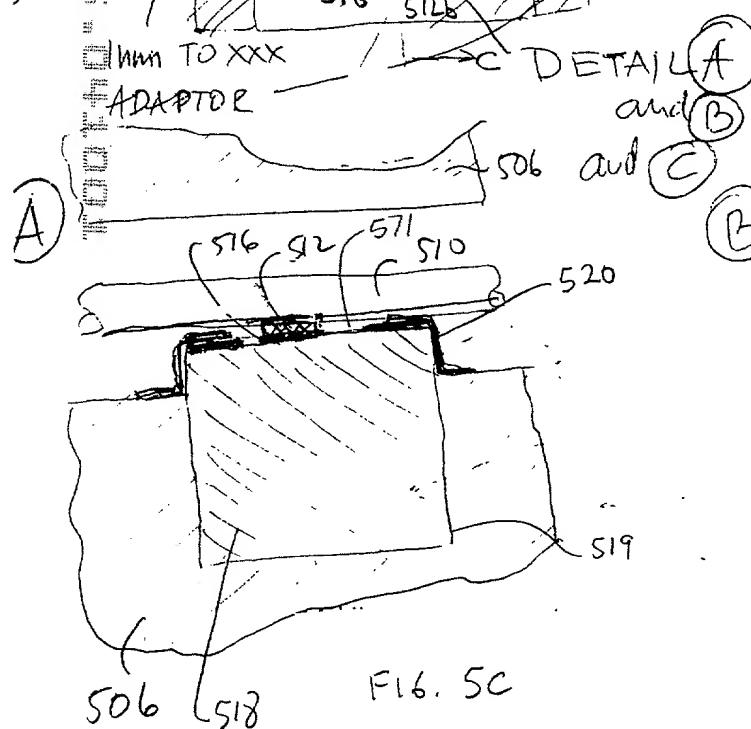 512b
1mm TO XXX
ADAPTOR
C DETAIL A
and B
506 and C
A
B
516 512 571 510
520
519
506 518
FIG. 5C